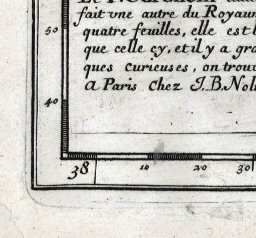 fait vne autre du Royaum
quatre feuilles, elle est
que celle cy, et il y a gra
ques curieuses, on trouv
A Paris Chez J.B. Noll
50
40
38
10
20
30